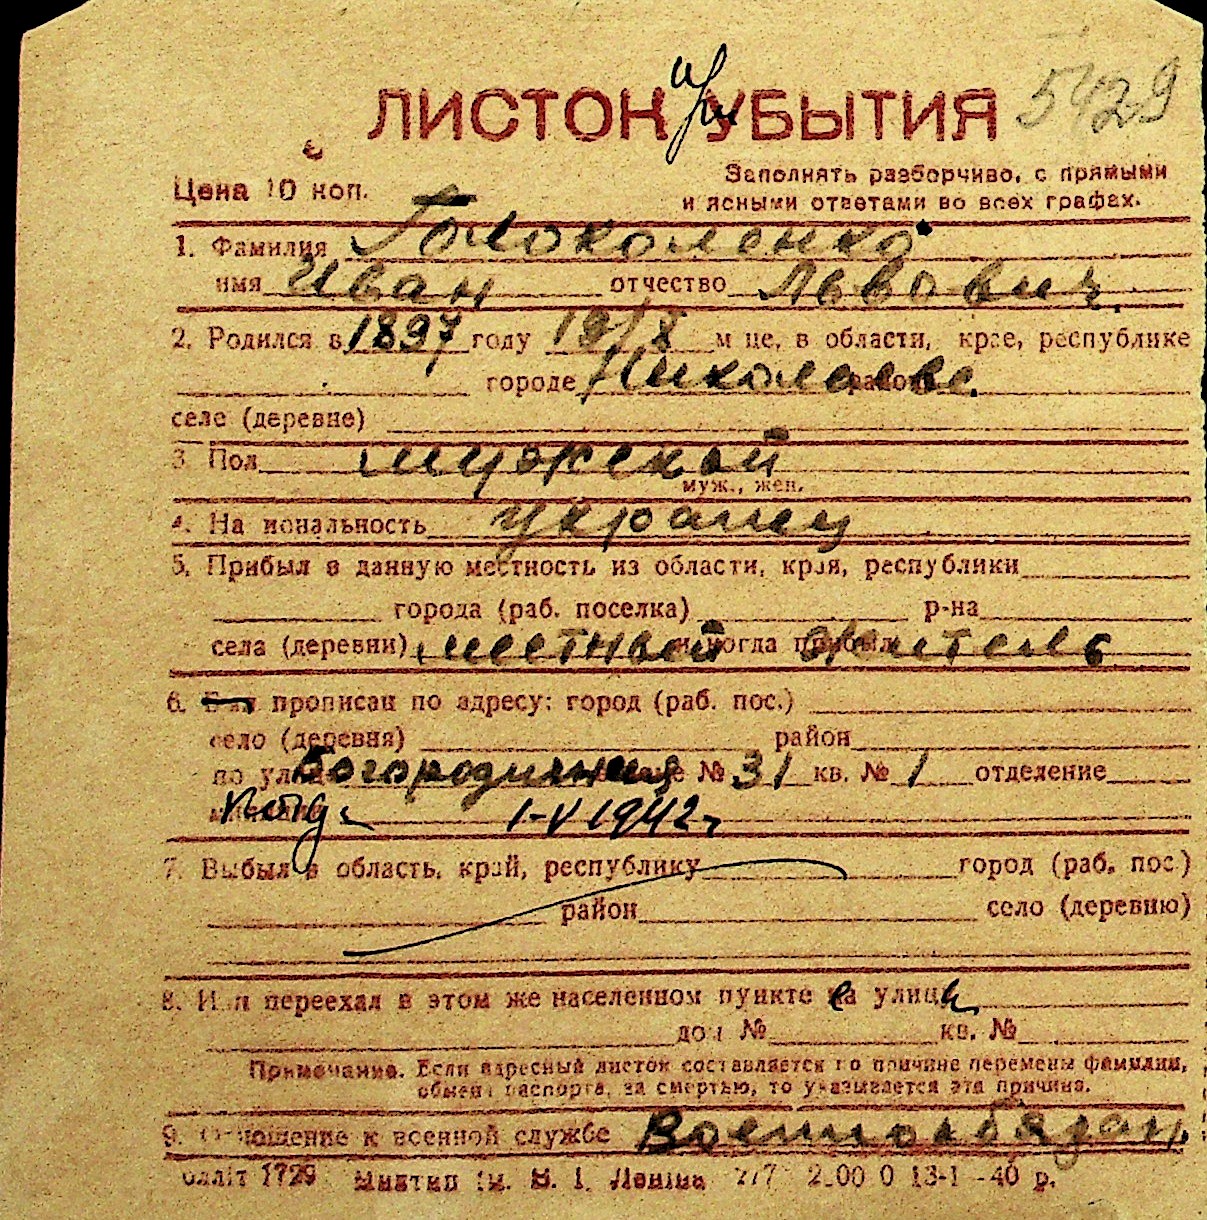 ЛИСТОК при УБЫТИЯ 5429
Цена 10 коп. Заполнять разборчиво, с прямыми
и ясными ответами во всех графах.
1. Фамилия Голоколенко
имя Иван отчество Львович
2. Родился в 1897 году 19/X м це, в области, крае, республике
городе Николаеве район
селе (деревне)
3 Пол мужской
муж., жен.
4. На иональность украинец
5. Прибыл в данную местность из области, края, республики
города (раб. поселка) р-на
села (деревни) местный и когда прибыл житель
6. Был прописан по адресу: город (раб. пос.)
село (деревня) район
по улице № 31 кв. № 1 отделение
милиции 1-V 1942 г.
7. Выбыл в область, край, республику город (раб. пос.)
район село (деревню)
8. Или переехал в этом же населенном пункте на улицу
дом № кв. №
Примечание. Если адресный листок составляется по причине перемены фамилии,
обмена паспорта, за смертью, то указывается эта причина.
9. Отношение к военной службе Военнообязан.
1729 ім. В. І. Леніна 2.00 0 13-1 -40 р.